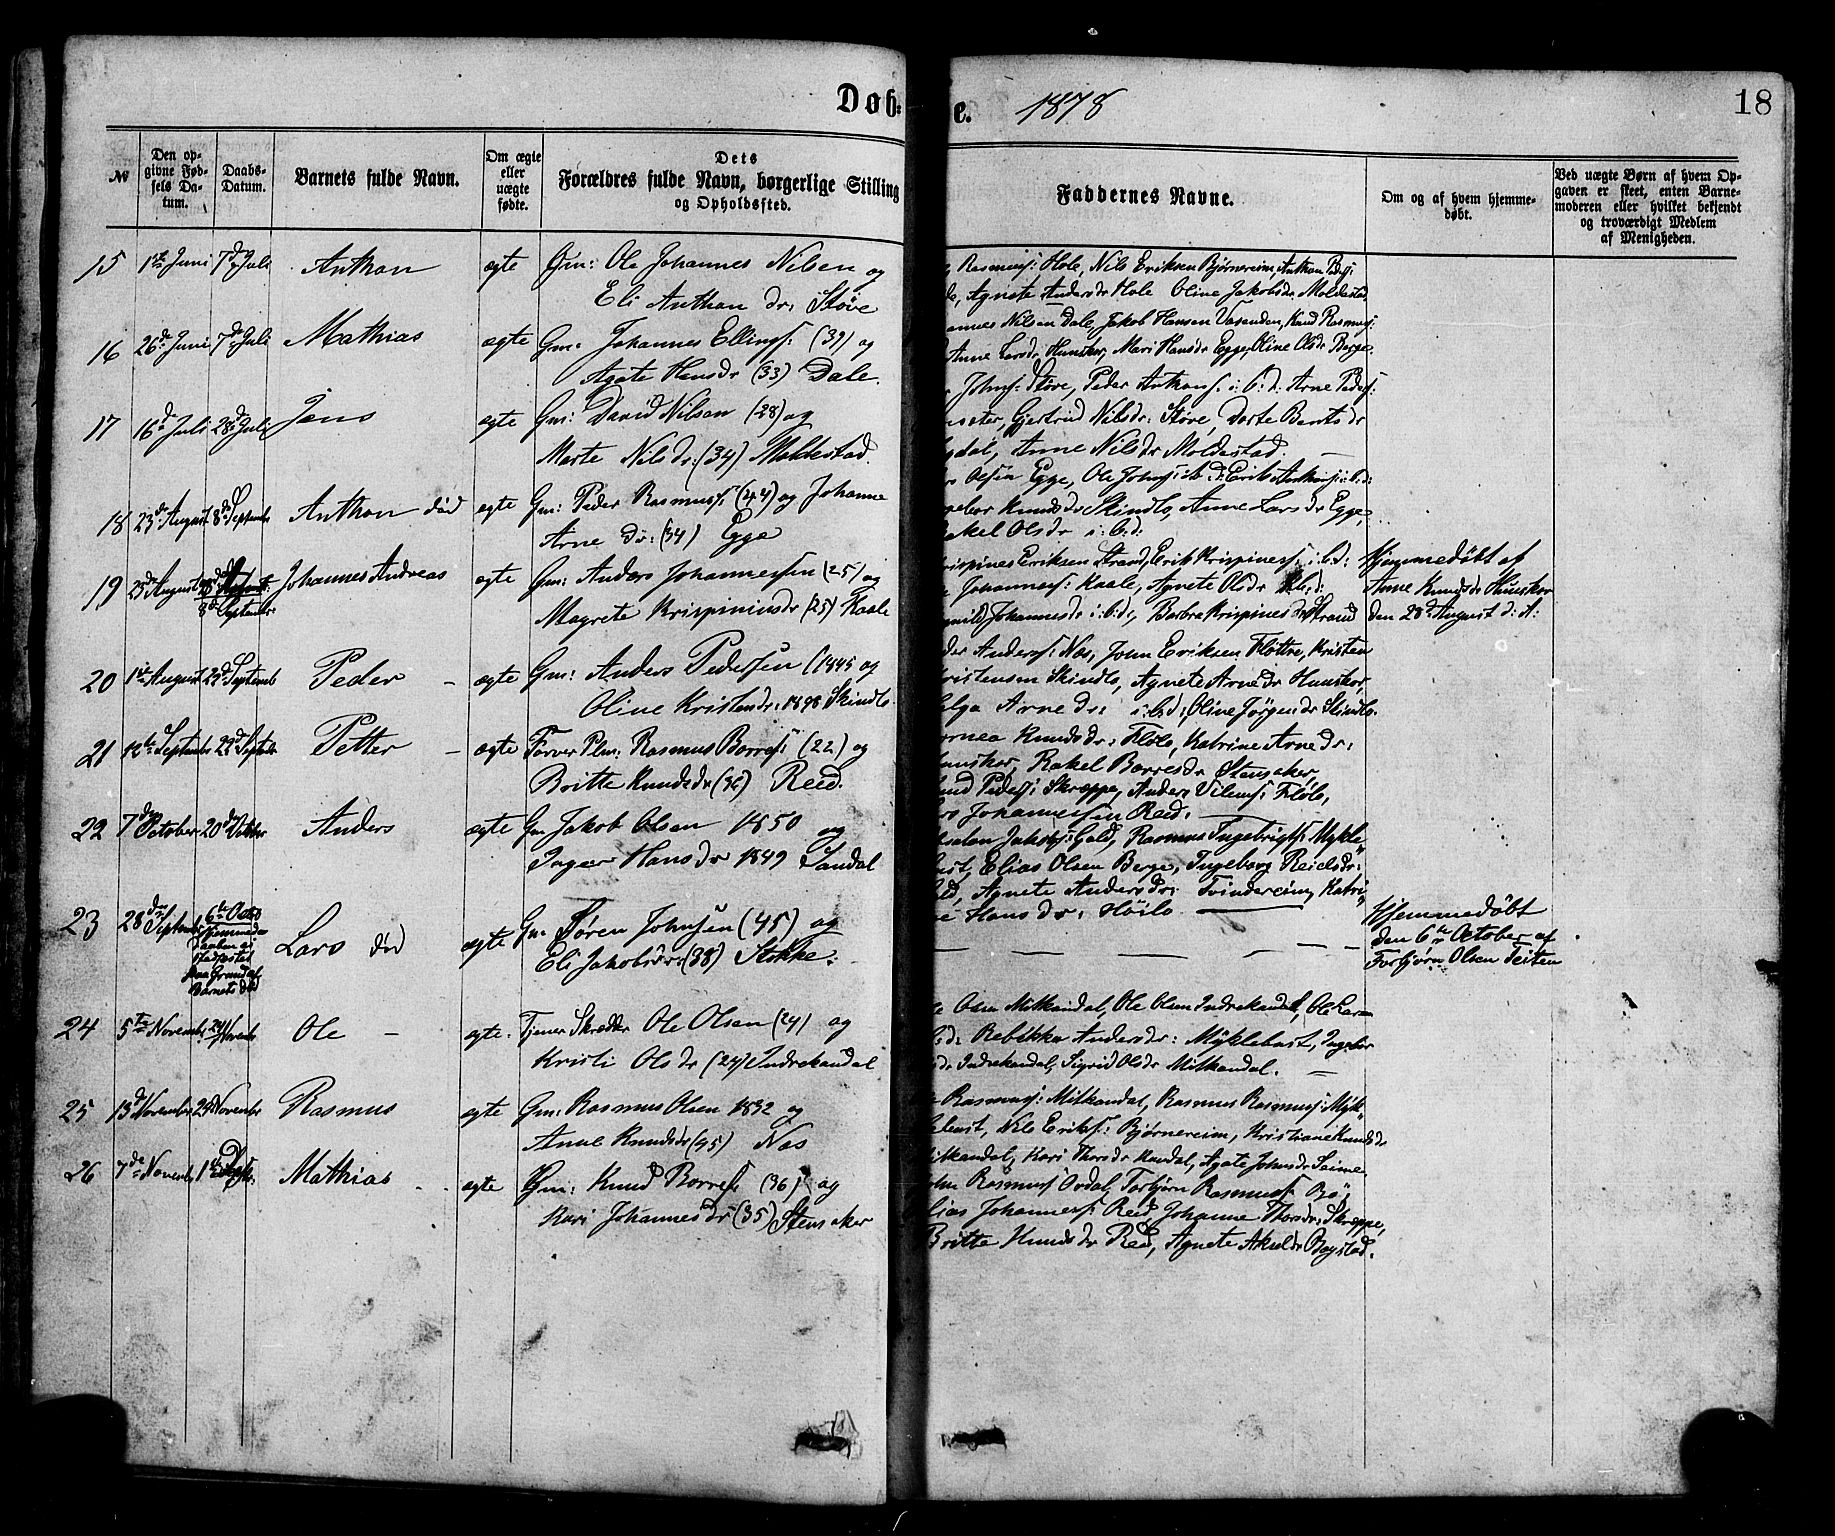 Døb: e. 1878
18
№
Den op-
givne Fød-
sels Da-
tum.
Daabs-
Datum.
Barnets fulde Navn.
Om ægte
eller
uægte
fødte.
Dets
Forældres fulde Navn, borgerlige Stilling
og Opholdssted.
Faddernes Navne.
Om og af hvem hjemme-
døbt.
Ved uægte Børn af hvem Op-
gaven er skeet, enten Barne-
moderen eller hvilket bekjendt
og troværdigt Medlem
af Menigheden.
15 1ste Juni 7de Juli Anthon ægte Gm: Ole Johannes Nilsen og
Eli Anthon dr: Støve
Rasmusf: Hole, Nils Eriksen Bjørnereim, Anthon Pedf:
Agnete Andersdr Hole Oline Jakobsdr Moldestad
16 26de Juni 7de Juli Mathias ægte Gm: Johannes Ellingsf: (39) og
Agate Hansdr (33) Dale.
annes Nilsen Dale, Jakob Hansen Vasenden, Knud Rasmusf:
Anne Larsdr Hunskor, Mari Hansdr Egge, Oline Olsdr Berge.
17 16de Juli 28de Juli Jens ægte Gm: David Nilsen (28) og
Marte Nilsdr: (34) Moldestad.
Johnsf: Støve, Peder Anthonsf. i: b: d: Arne Pedf:
Gjertrud Nilsdr: Støve, Dorte Berntsdr
Anne Nilsdr Moldestad.
18 23de August 8de Septembr Anthon död ægte Gm: Peder Rasmusf: (44) og Johanne
Arne dr: (34) Egge
Olsen Egge, Ole Johnsf: i: b: d: Erik Anthonsf: i: b: d:
Knudsdr Skindlo, Anne Larsdr Egge,
akel Olsdr i: b: d:
19 23de August 8de Septembr Johannes Andreas ægte Gm: Anders Johannessen (25) og
Magrete Krispiniusdr (25) Kaale
rispines Eriksen Strand, Erik Krispinesf: i: b: d:
Johannesf: Kaale, Agnete Olsdr i: b: d:
Johannesdr i: b: d:, Barbra Krispinesdr Strand
Hjemmedøbt af
Anne Knudsdr Hunskor
den 28de August d: A:
20 1ste August 22de Septemb Peder - ægte Gm: Anders Pedersen (1445 og
Oline Kristendr: 1848 Skindlo.
der Andersf: Nos, John Eriksen Fløttre, Kristen
ristensen Skindlo, Agnete Arnedr Hunskor,
elga Arnedr: i: b: d: Oline Jørgensdr Skindlo.
21 12te Septembr 22de Septbr Petter - ægte Farver Plm: Rasmus Børresf: (22) og
Britte Knudsdr (36) Reed.
Knudsdr: Fløle, Katrine Arnedr:
unskor, Rakel Børresdr Stensaker,
nud Pedersf: Skreppe, Anders Vilemsf: Fløle,
Johannessen Reed.
22 7de October 20de Oktbr Anders ægte Gm Jakob Olsen 1850 og
Inger Hansdr 1849 Sandal
Jakobsf: Gald, Rasmus Ingebrigtsf: Mykle-
bust, Elias Olsen Berge, Ingeborg Reielsdr:
Agnete Andersdr: Tvindereim, Katri-
ne Hansdr: Höilo.
23 28de Septembr 6te Octbr
Hjemmedø
Daaben ei
stadfæstet
paa Grund af
Barnets Død
Lars död ægte Gm Søren Johnsen (45) og
Eli Jakobsdr: (38) Stokke.
Hjemmedöbt
den 6te October af
Torbjørn Olsen Teiten
24 5te Novembr 24 Novembr Ole - ægte. Tjener Skrædder Ole Olsen (24) og
Kristi Olsdr (24) Indrekandal
Olsen Mitkandal, Ole Olsen Indrekandal, Ole Lars
Rebikka Andersdr: Myklebust, Ingebor
Indrekandal, Sigrid Olsdr Mitkandal.
25 13de Novembr 24de Novembr Rasmus ægte Gm: Rasmus Olsen 1832 og
Anne Knudsdr (45) Nos
Rasmusf: Mitkandal, Rasmus Rasmusf: Myk-
lebust, Nils Eriksf: Bjørnereim, Kristiane Knudsdr
itkandal, Kari Thorsdr Kandal, Agate Johnsdr Seime
26 7de Novembr 1ste Mathias ægte Gm: Knud Børresf: (36) og
Kari Johannesdr (35) Stensaker
ohn Rasmusf Ordal, Torbjørn Rasmusf Bø,
lias Johannesf: Reed, Johanne Thorsdr: Skreppe,
Britte Knudsdr Reed, Agnete Akseldr Bogstad.